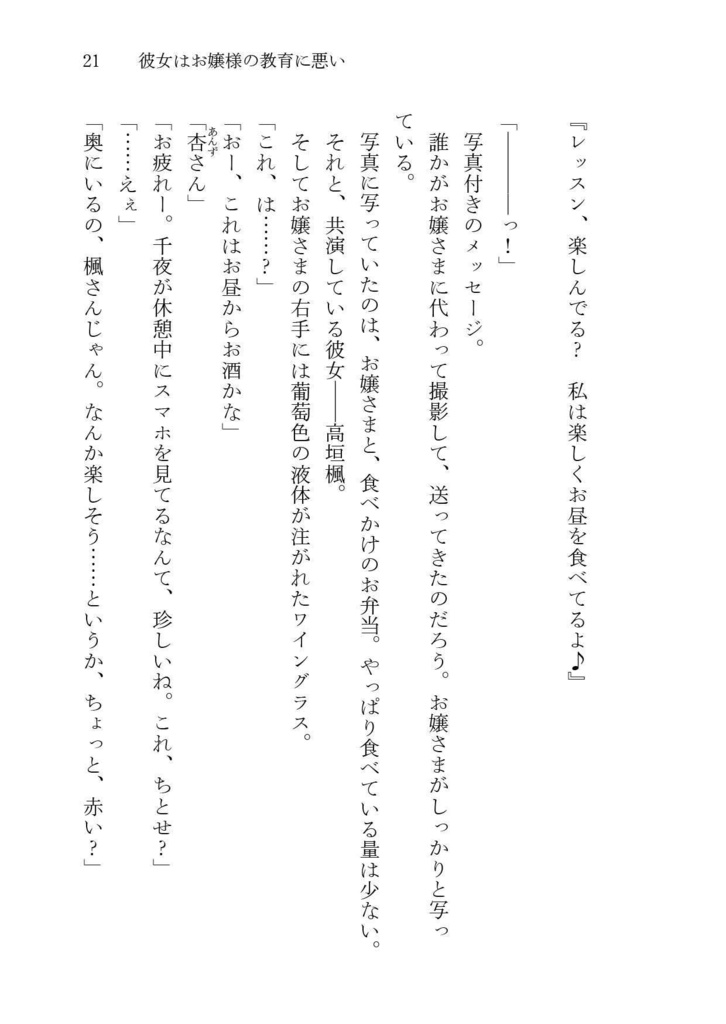 21　彼女はお嬢様の教育に悪い
『レッスン、楽しんでる？　私は楽しくお昼を食べてるよ♪』
「――――っ！」
写真付きのメッセージ。
誰かがお嬢さまに代わって撮影して、送ってきたのだろう。お嬢さまがしっかりと写っ
ている。
写真に写っていたのは、お嬢さまと、食べかけのお弁当。やっぱり食べている量は少ない。
それと、共演している彼女――高垣楓。
そしてお嬢さまの右手には葡萄色の液体が注がれたワイングラス。
「これ、は……？」
「おー、これはお昼からお酒かな」
「杏さん」
あんず
「お疲れー。千夜が休憩中にスマホを見てるなんて、珍しいね。これ、ちとせ？」
「……えぇ」
「奥にいるの、楓さんじゃん。なんか楽しそう……というか、ちょっと、赤い？」